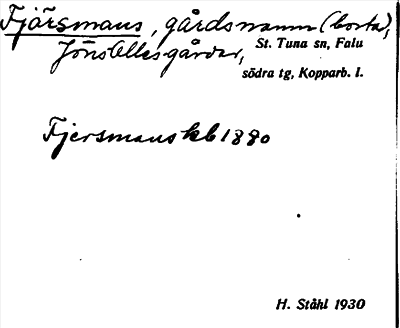 Fjärsmans, gårdsnamn (borta),
Jöns Olles gårdar, St. Tuna sn, Falu
södra tg, Kopparb. l.
Fjersmans kb 1880
H. Ståhl 1930